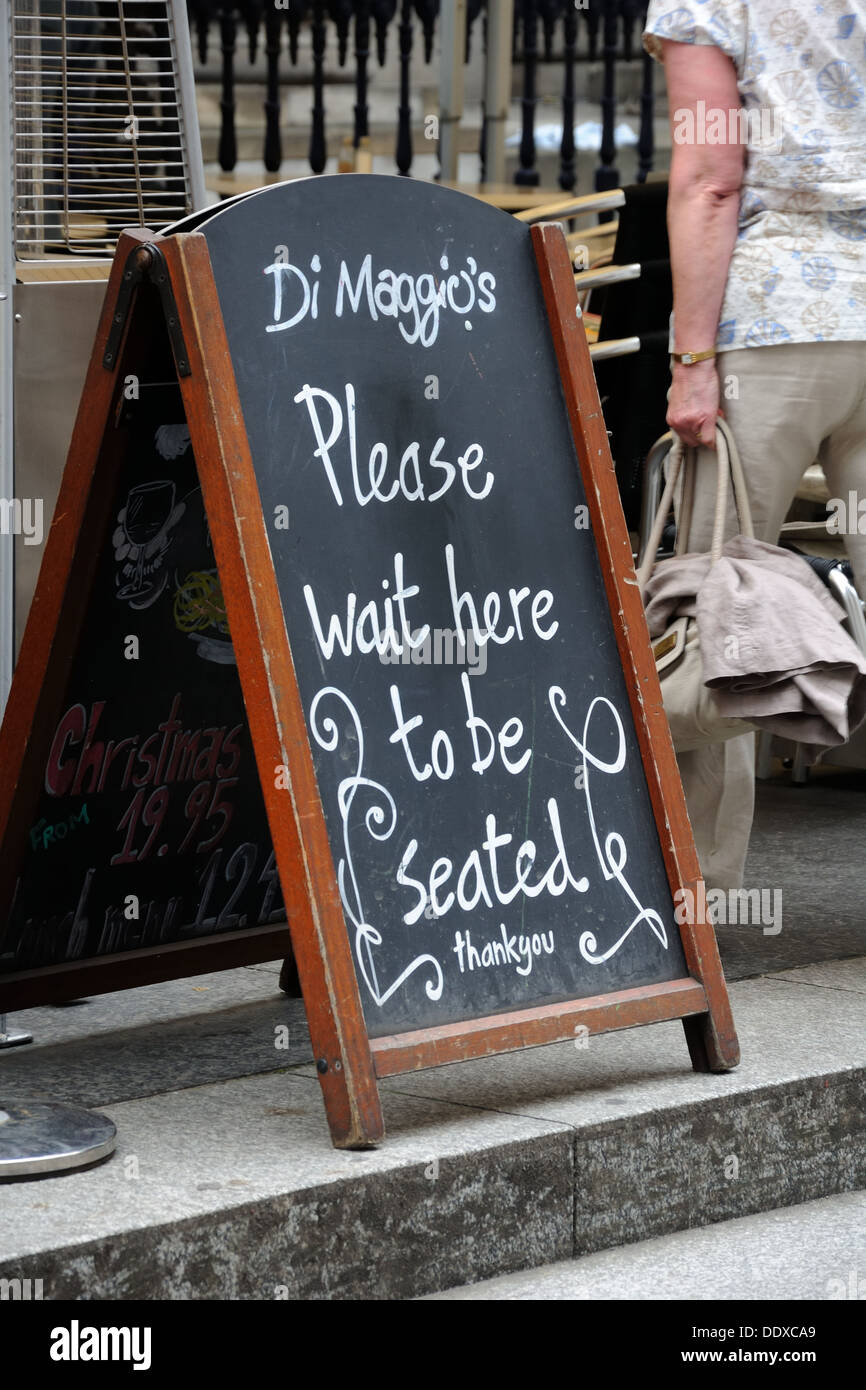 Di Maggio's
Please
wait here
to be
seated
thankyou
Christmas
FROM
19.95
Lunch menu 12.
alamy
Image ID: DDXCA9
www.alamy.com